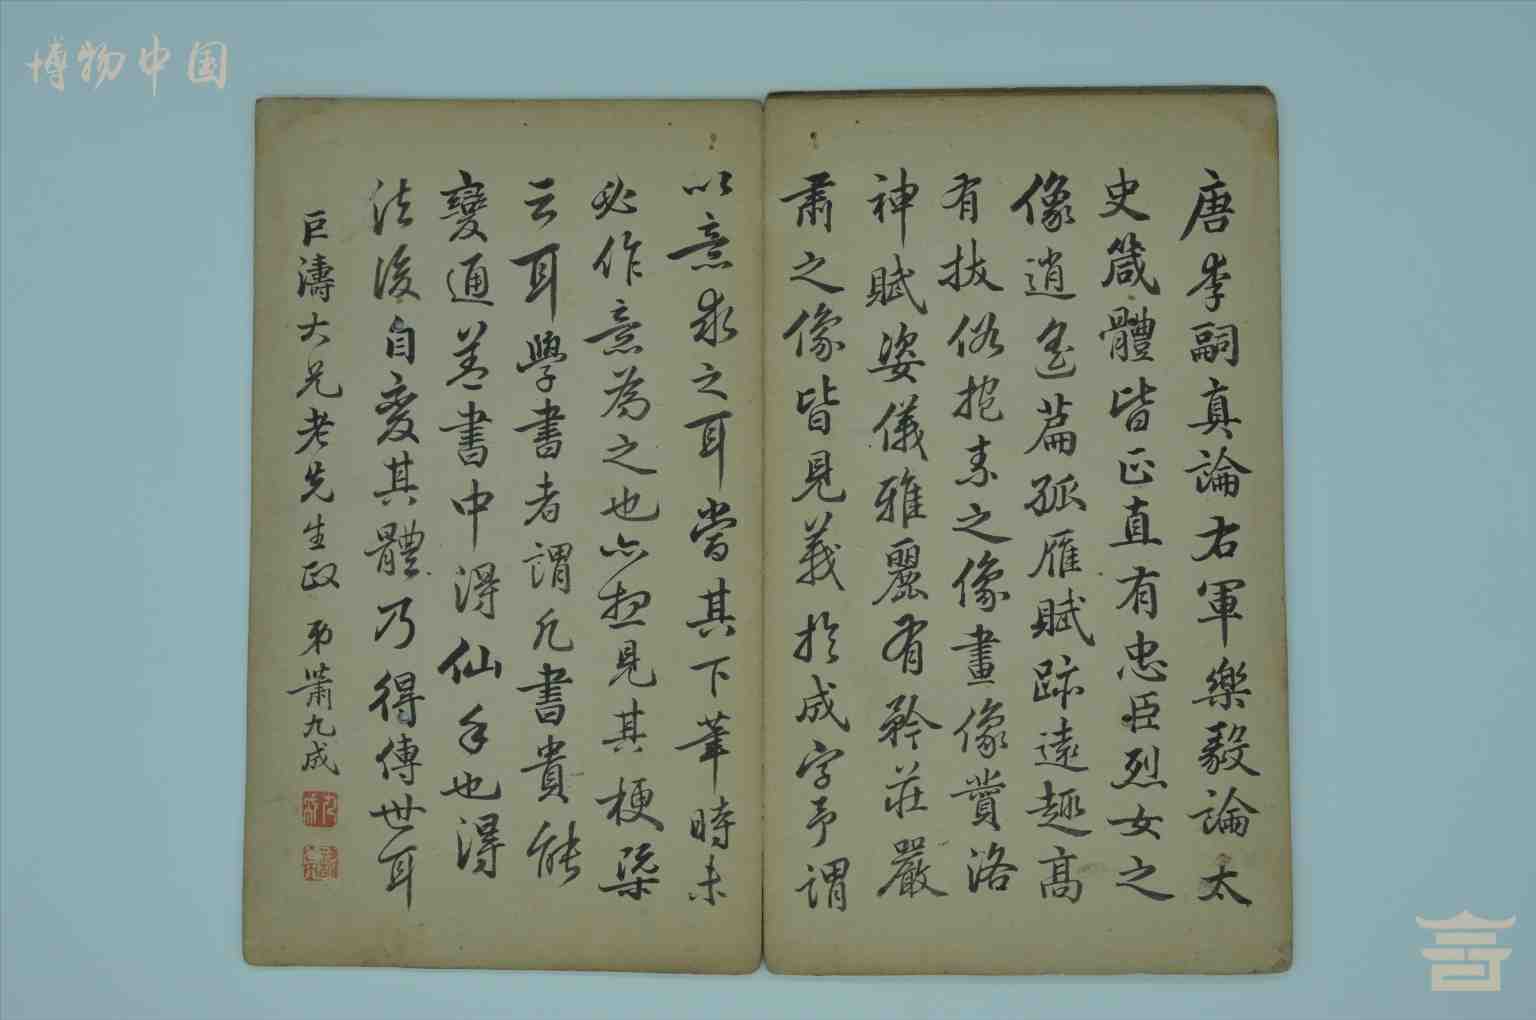 博物中国
唐李嗣真論右軍樂毅論太
史箴體皆正直有忠臣烈女之
像逍遙篇孤雁賦跡遠趣高
有拔俗抱素之像畫像賛洛
神賦姿儀雅麗有矜莊嚴
肅之像皆見義於成字予謂
以意求之耳當其下筆時未
必作意為之也亦想見其梗槩
云耳學書者謂凡書貴能
變通盖書中得仙手也得
法後自變其體乃得傳世耳
巨濤大兄老先生政 弟蕭九成